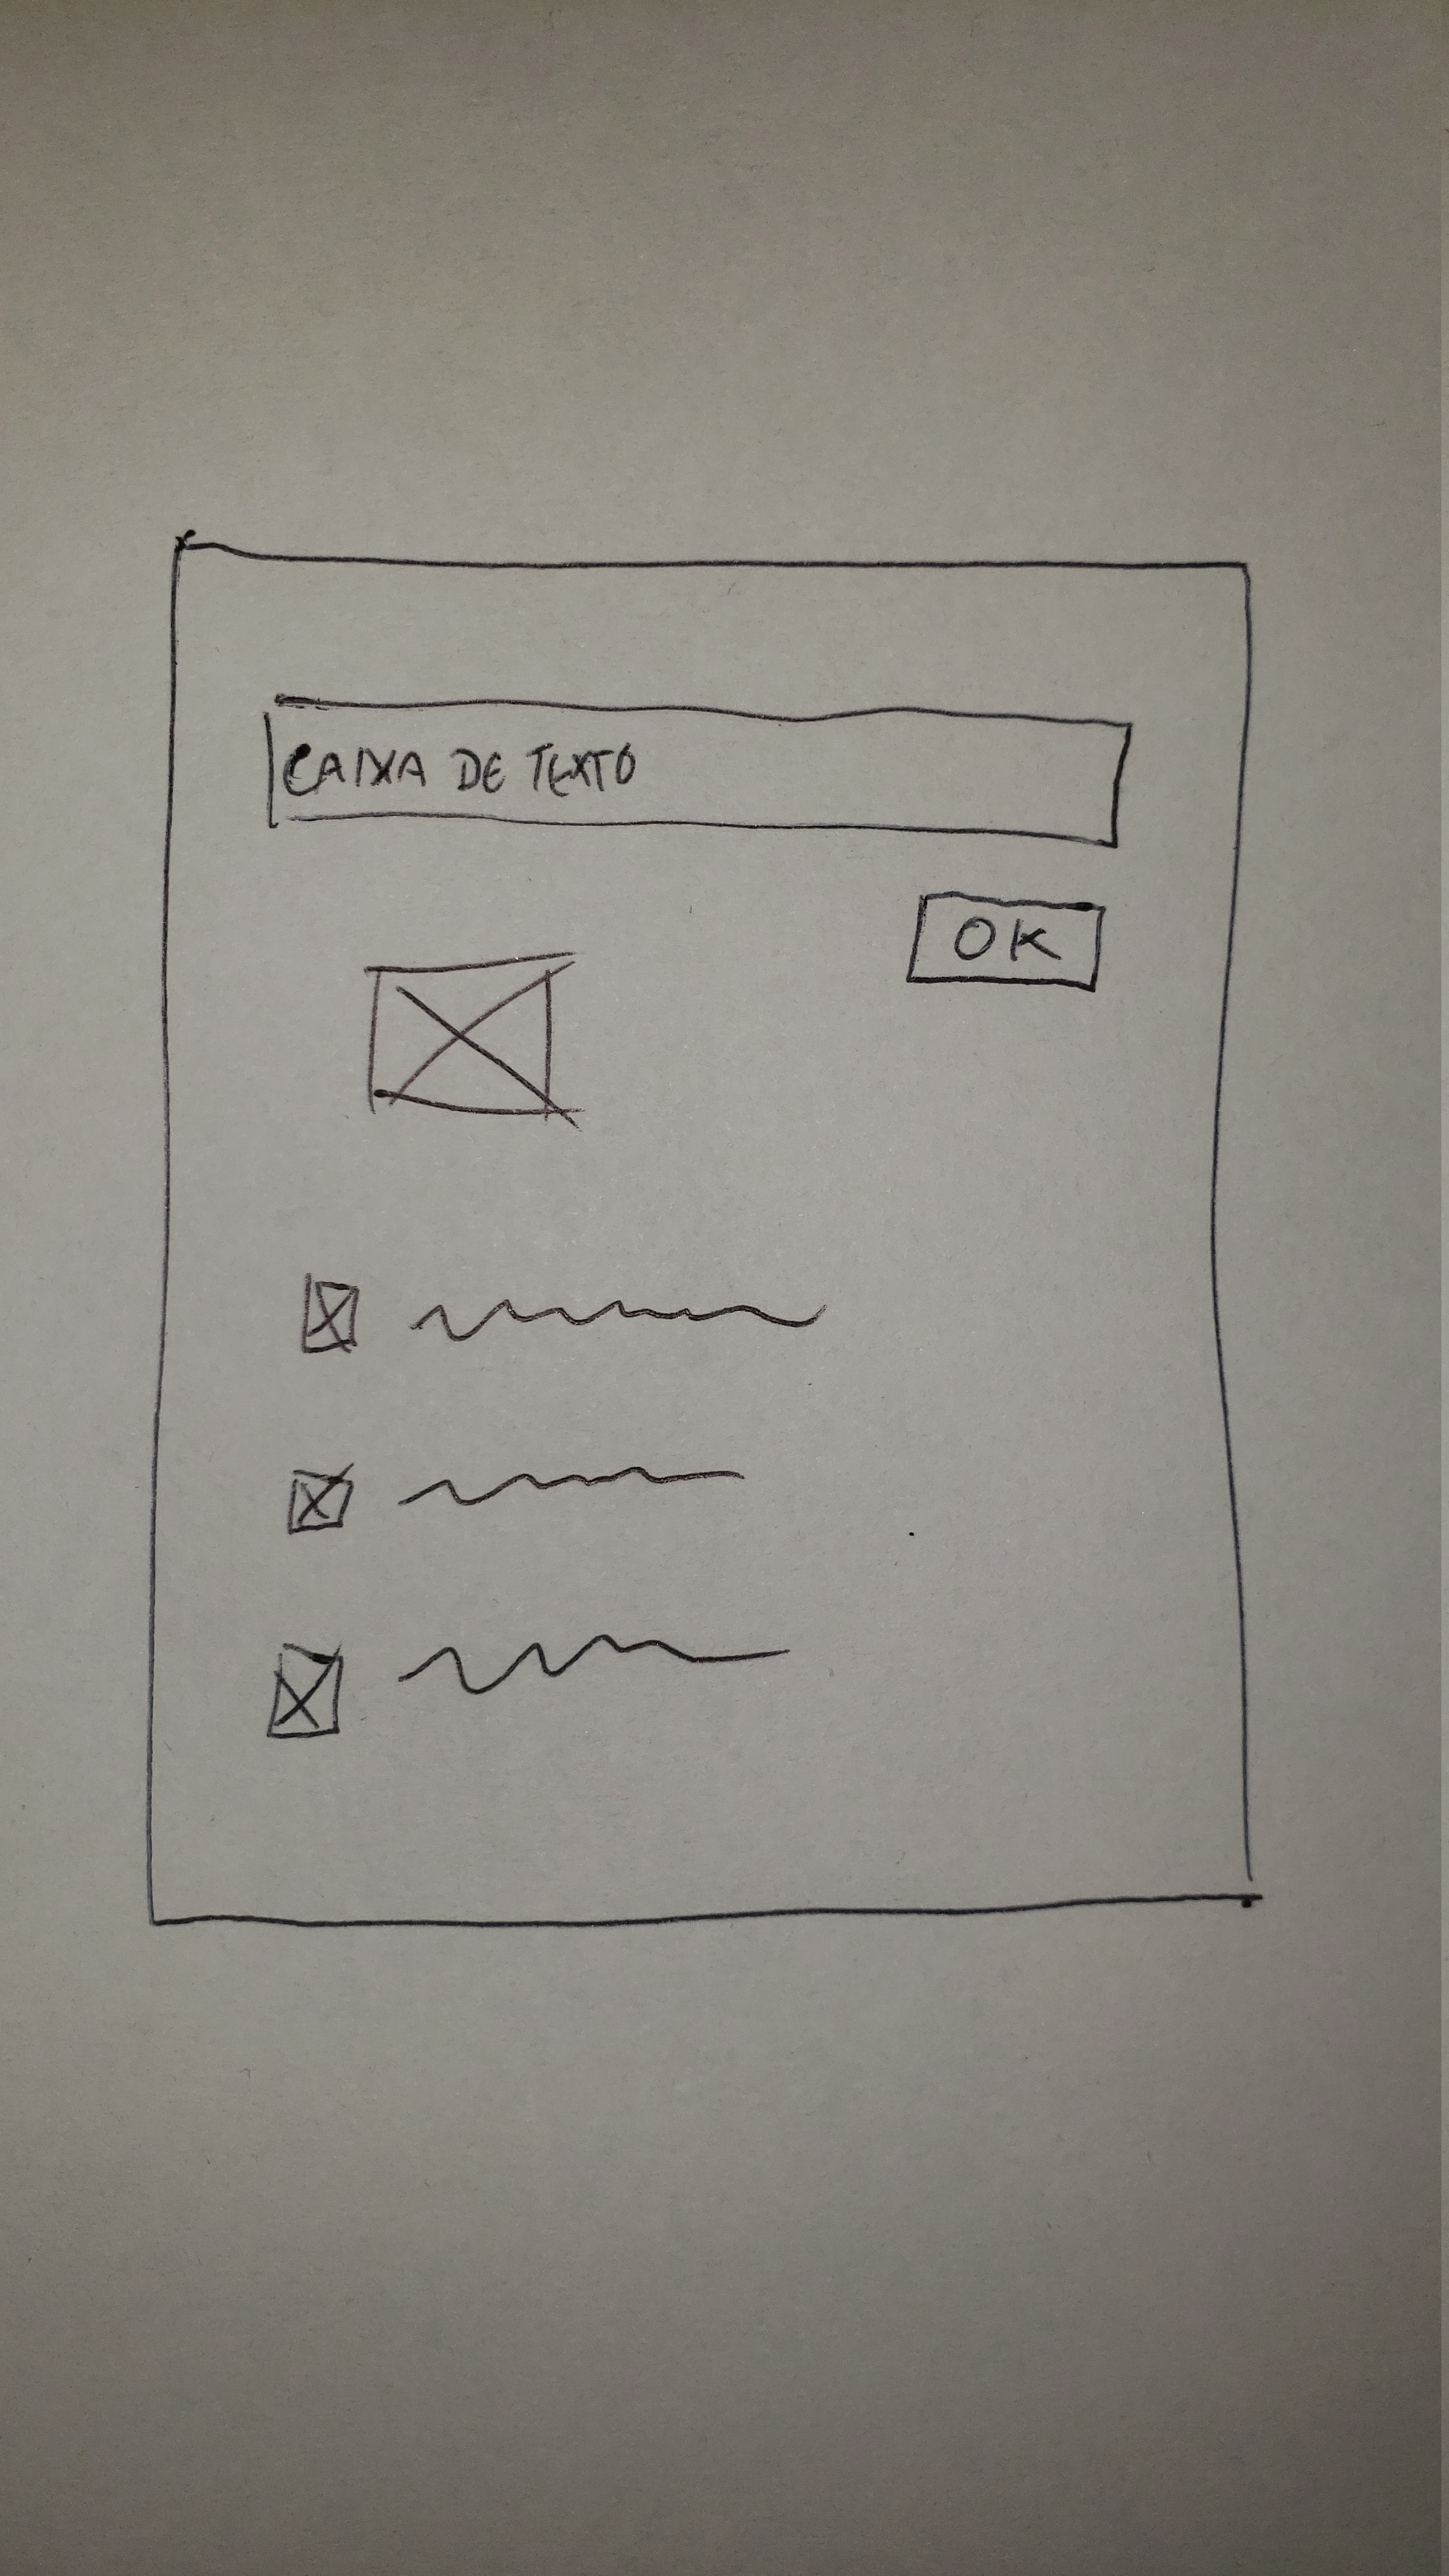 CAIXA DE TEXTO
OK